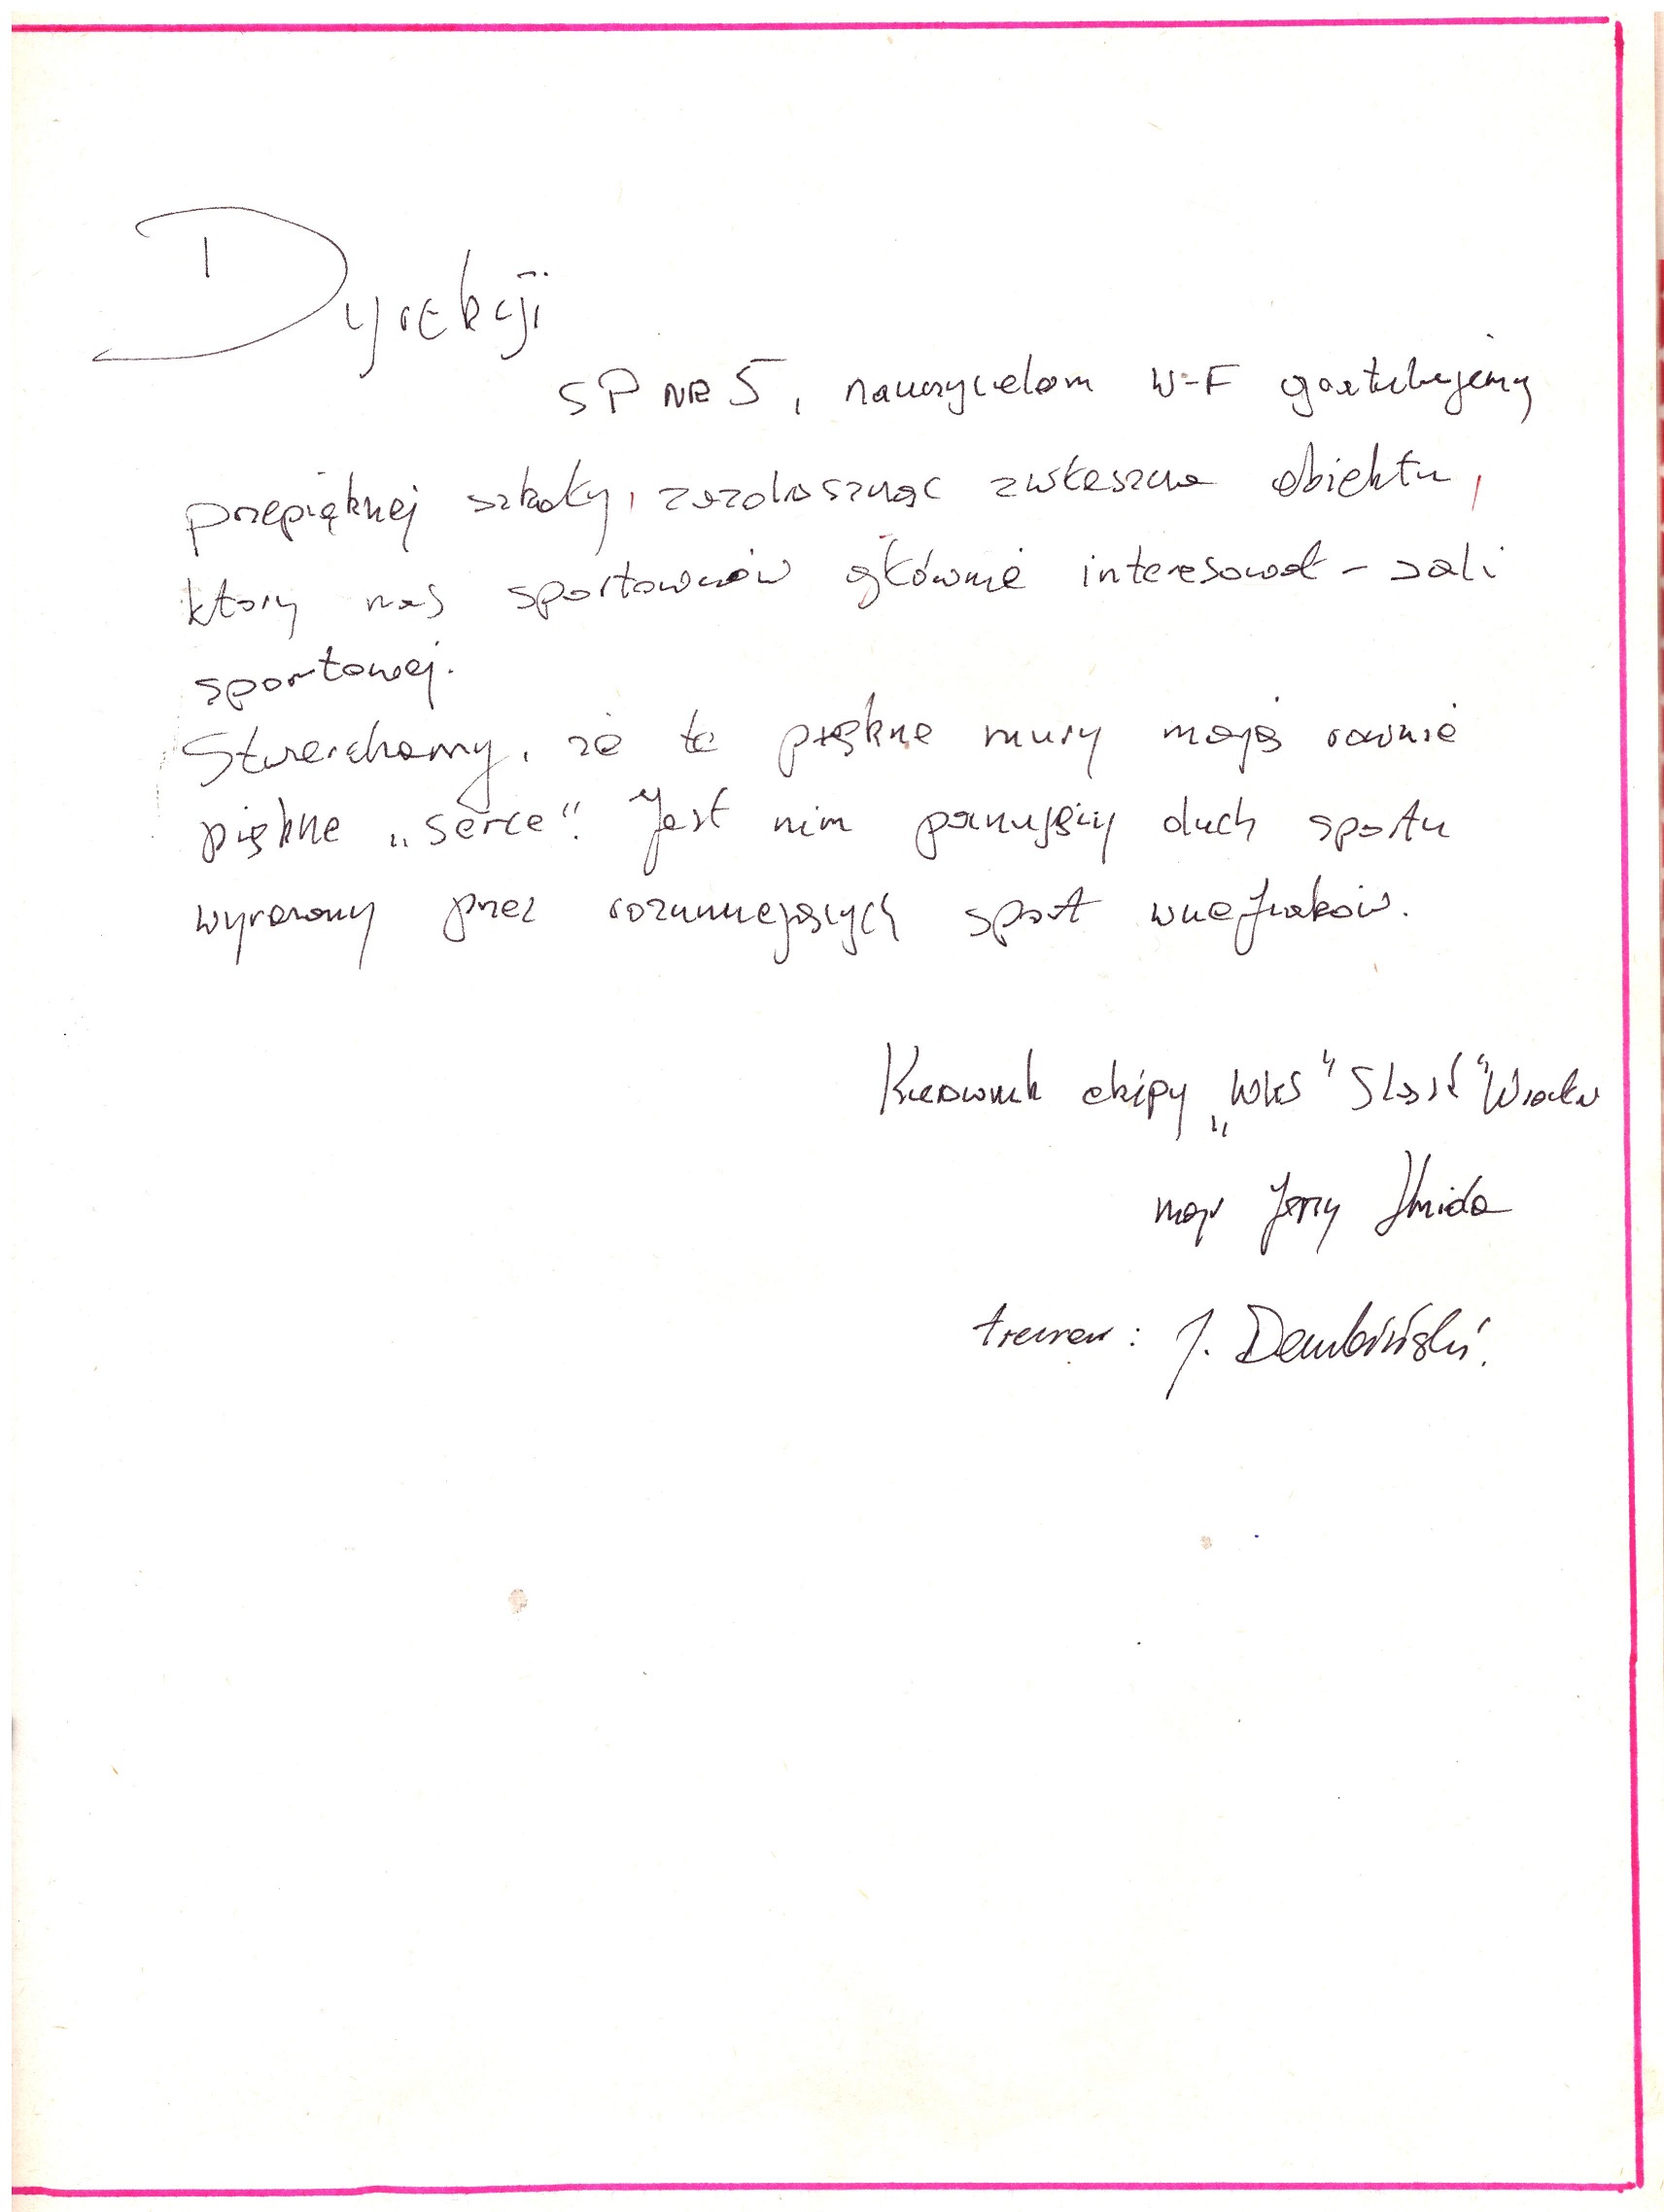 Dyrekcji
SP NR 5, nauczycielom W-F gratulujemy
przepięknej szkoły, zazdroszcząc zwłaszcza obiektu,
który nas sportowców głównie interesował - sali
sportowej.
Stwierdzamy, że te piękne mury mają równie
piękne „serce". Jest nim panujący duch sportu
wyrażony przez rozumiejących sport wuefiaków.
Kierownik ekipy „WKS" Śląsk" Wrocław
mgr Jerzy
trener: J. Dembiński.